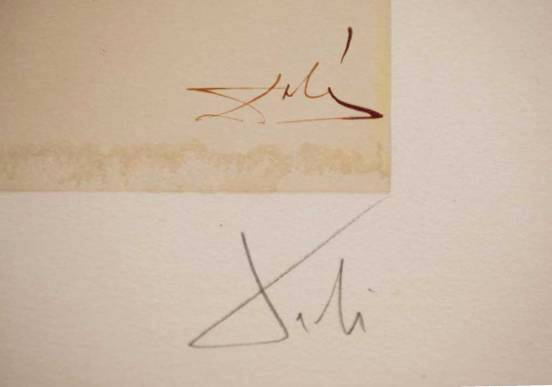 Dalí
Dali